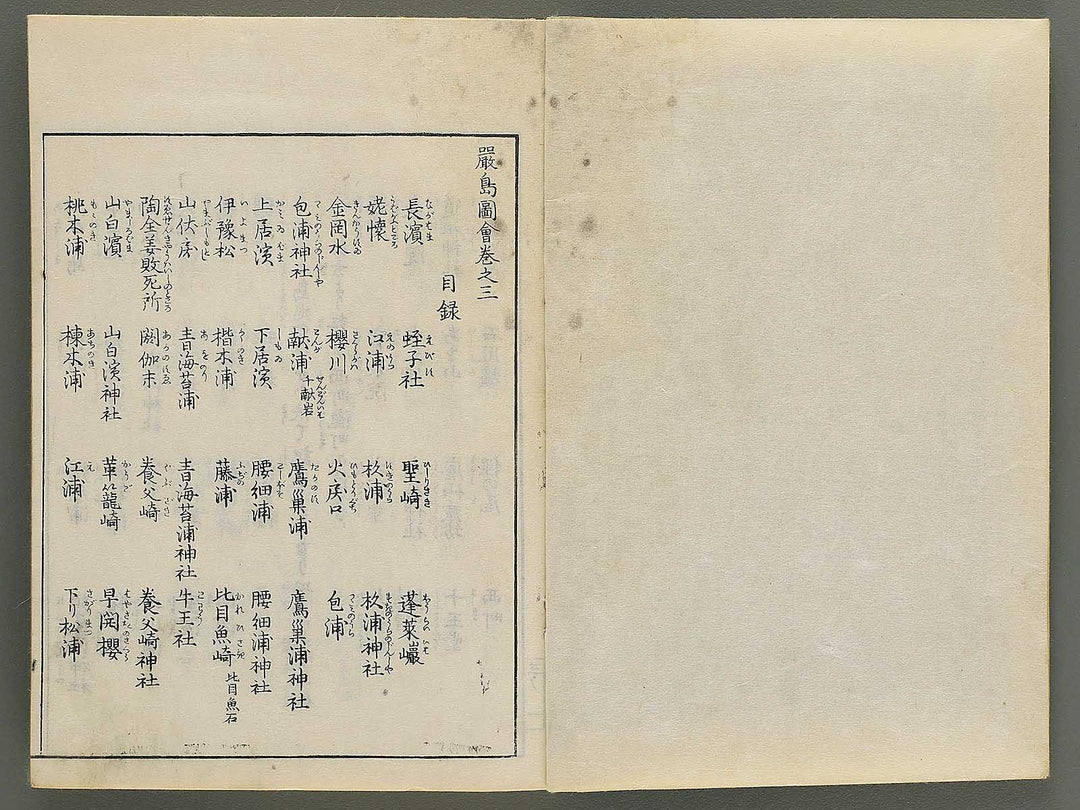 嚴島圖會巻之三
目録
長濱 蛭子社 聖崎 蓬莱巖
姥懐 江浦 杉浦 杉浦神社
金岡水 櫻川 火房口 包浦
包浦神社 献浦 千献岩 鷹巣浦 鷹巣浦神社
上居濱 下居濱 腰細浦 腰細浦神社
伊豫松 楷木浦 藤浦 比目魚崎 比目魚石
山伏房 青海苔浦 青海苔浦神社 牛王社
陶全姜敗死所 閼伽井 養父崎 養父崎神社
山白濱 山白濱神社 革籠崎 早開櫻
桃木浦 棟木浦 江浦 下り松浦